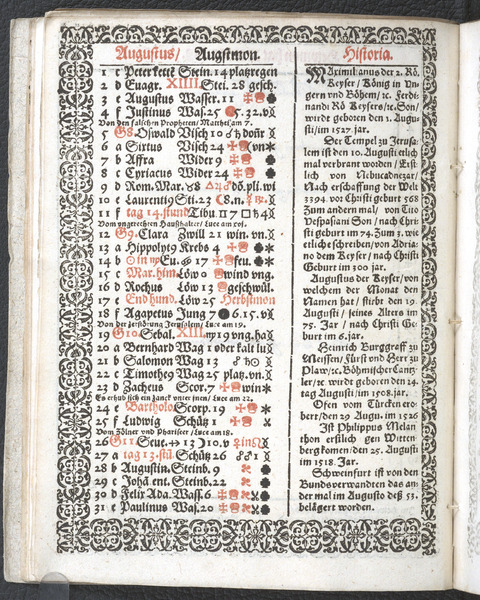 Augustus/ Augstmon.
1 c Peter kettē Stein. 14 platzregen
2 d Euagr. XIIII Stei. 28 gesch.
3 e Augustus Wasser. 11
4 f Justinus Was. 25 5. 32. v
Von den falschē Propheten/ Matthei am 7.
5 G8. Oswald Visch 10 ☍ ♄ doñr
6 a Sixtus Visch 24 vn
7 b Affra Wider 9
8 c Cyriacus Wider 24
9 d Rom. Mar. ♉8 △♂ ob. pli. wi
10 e Laurentig Sti. 23 ☾ 8. n.
11 f tag 14. stund Tibu. ♊ 7 □ ♄ 4
Vom vngrechten Haußhalter/ Luce am 16.
12 G9. Clara Zwill 21 win. vn.
13 a Hippolyt9 Krebs 4
14 b ☉ in ♍ Eu. 17 feu.
15 c Mar. him. Löw 0 wind vng.
16 d Rochus Löw 13 geschwül.
17 e End hund. Löw 25 Herbstmon
18 f Agapetus Jung 7 6. 15. v
Von der zerstörung Jerusalem/ Luce am 19.
19 G10 Sebal. XIII. ♍ 19 vng. ha
20 a Bernhard Wag 1 oder kalt lu
21 b Salomon Wag 13
22 c Timotheg Wag 25 platz. vn.
23 d Zacheus Scor. 7 win
Es erhub sich ein zanck vnter jnen/ Luce am 22.
24 e Bartholo Scorp. 19
25 f Ludwig Schütz 1
Vom Zölner vnd Phariseer/ Luce am 18.
26 G11 Seue. ♐ 13 ☽ 10. v ♀ in
27 a tag 13. stū. Schütz 26 ☌♂
28 b Augustin. Steinb. 9
29 c Johā ent. Steinb. 22
30 d Felix Ada. Waß. 6
31 e Paulinus Waß. 20
Historia.
MAximilianus der 2. Rö.
Keyser/ König in Vn-
gern vnd Böhem/ ꝛc. Ferdi-
nandi Rö Keysers/ꝛc. Son/
wird geboren den 1. Augu-
sti/ im 1527 jar.
Der Tempel zu Jerusa-
lem ist den 10. Augusti erstlich
mal verbrant worden/ Erst
lich von Nebucadnezar/
Nach erschaffung der Welt
3394 vor Christi geburt 568
Zum andern mal/ von Tito
Vespasiani Son/ nach Chri-
sti geburt im 74. Zum 3. wie
etliche schreiben/ von Adria-
no dem Keyser/ nach Christi
Geburt im 300 jar.
Augustus der Keyser/ von
welchem der Monat den
Namen hat/ stirbt den 19.
Augusti/ seines Alters im
75. Jar/ nach Christi Ge-
burt im 6. jar.
Heinrich Burggraff zu
Meissen/ Fürst vnd Herr zu
Plaw/ꝛc. Böhmischer Cantz-
ler/ ꝛc. wird geboren den 24.
tag Augusti/ im 1508 jar.
Ofen vom Türcken ero-
bert/ den 29 Augu. im 1526
Ist Philippus Melan
thon erstlich gen Witten-
berg komen/ den 25. Augusti
im 1518. Jar.
Schweinfurt ist von den
Bundsverwandten das an-
der mal im Augusto deß 53.
belägert worden.